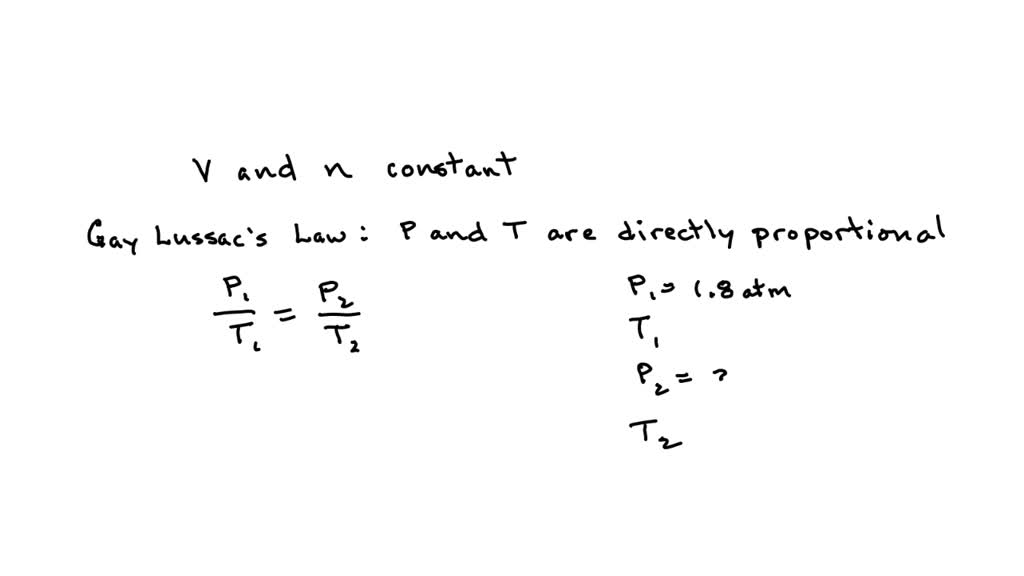 V and n constant
Gay Lussac's Law: P and T are directly proportional
P₁/T₁ = P₂/T₂
P₁ = 1.8 atm
T₁
P₂ = ?
T₂